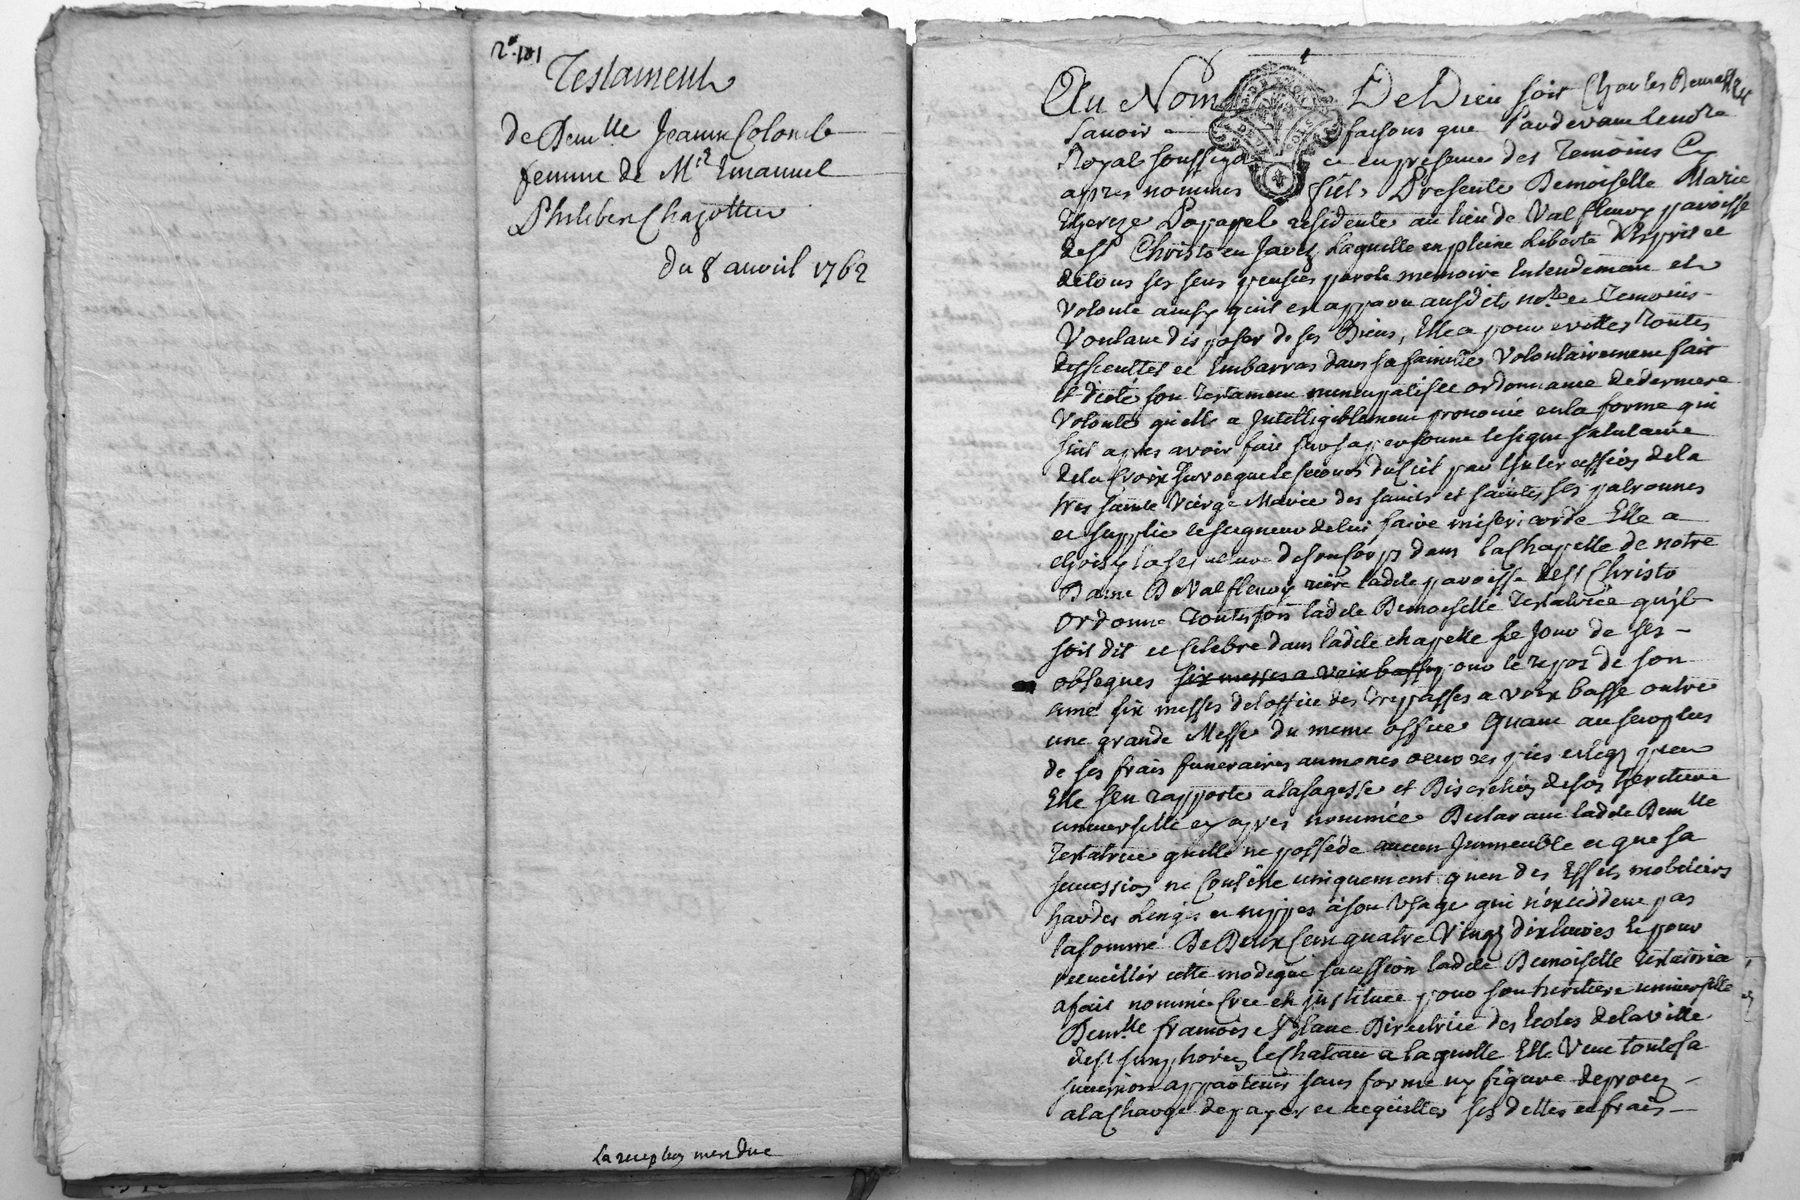 2e. 181
Testament
de Demlle Jeanne Colomb
femme de Mre Emanuel
Philibert Chazottier
du 8 avril 1762
La reception mest due
Au Nom De Dieu soit
Savoir faisons que Pardevant le no.re
Royal soussigné et en presence des Temoins Cy
apres nommes fut Presente Demoiselle Marie
Thereze Pognel residente au lieu de Valfleury paroisse
de St Christo en Jarez Laquelle en pleine Liberté D'Esprit et
de tous ses sens pensées parole memoire Entendement et
Volonté ainsy quil est apparu ausdits no.re et Temoins
Voulant disposer de ses Biens, Elle a pour eviter Toutes
difficultés et Embarras dans sa famille Volontairement fait
et dicté son Testament nuncupatif et ordonnance de derniere
Volonté quelle a Intelligiblement prononcé en la forme qui
suit apres avoir fait sur sa personne le signe salutaire
de la Croix Invoqué le secours du Ciel par L'intercession de la
tres sainte Vierge Marie des saints et saintes ses patronnes
et supplié le seigneur de lui faire misericorde Elle a
choisy la sepulture de son Corps dans la Chapelle de notre
Dame De Valfleury riere ladite paroisse de St Christo
Ordonne Toutesfois ladite Demoiselle Testatrice qu'il
soit dit et Celebré dans ladite chapelle le Jour de ses
obseques six messes a voix basse pour le repos de son
ame six messes de l'office des Trepasses a voix basse outre
une grande Messe du meme office Quant au surplus
de ses frais funeraires aumones oeuvres pies et legs pieux
Elle s'en rapporte a la sagesse et Discretion de son heritiere
universelle cy apres nommée Declarant ladite Demlle
Testatrice quelle ne possede aucun Immeuble et que sa
succession ne Consiste uniquement quen des Effets mobiliers
hardes Linges et nippes à son Usage qui n'excedent pas
la somme De Deux Cent quatre Vingt dix livres Et pour
recueillir cette modique succession ladite Demoiselle Testatrice
a fait nommée Crée et Instituée pour son heritiere universelle
Demlle francoise Directrice des Ecoles de la ville
de St simphorien le Chateau a laquelle Elle Veut toute sa
succession appartenir sans forme ny figure de proces
a la Charge de payer et acquitter ses dettes et frais